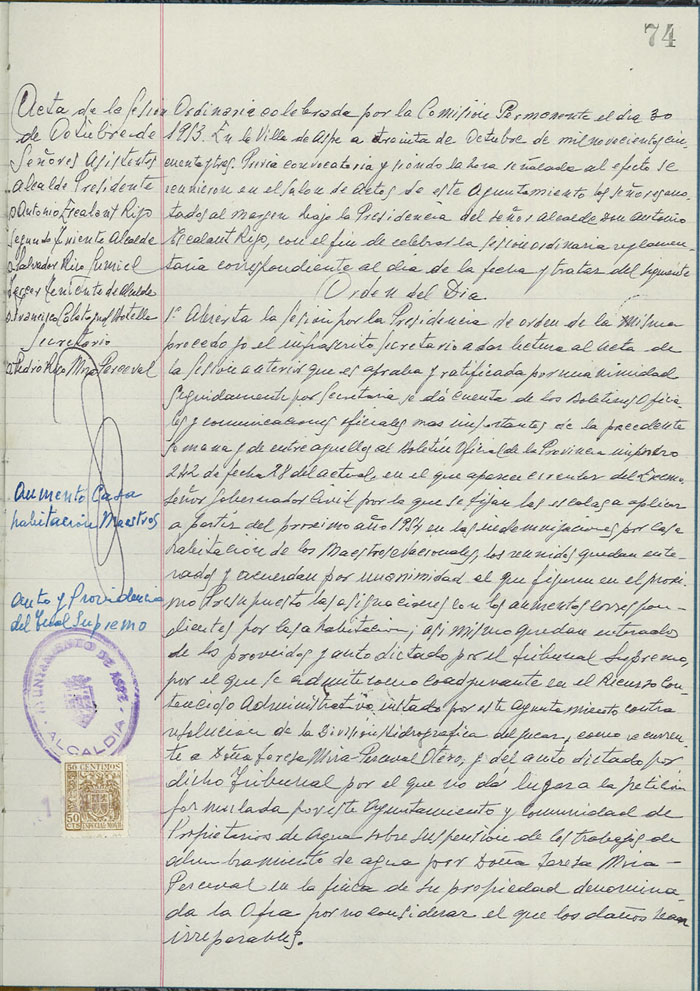 74
Acta de la Sesion Ordinaria celebrada por la Comisión Permanente el dia 30
de Octubre de 1953. En la Villa de Aspe a treinta de Octubre de mil novecientos cin-
cuenta y tres. Previa convocatoria y siendo la hora señalada al efecto se
reunieron en el Salon de Actos de este Ayuntamiento los señores ano-
tados al margen bajo la Presidencia del Señor Alcalde Don Antonio
Escalant Rizo, con el fin de celebrar la sesion ordinaria reglamen-
taria correspondiente al dia de la fecha y tratar del siguiente
Orden del Dia.
1º Abierta la Sesion por la Presidencia de orden de la misma
procedo yo el infrascrito Secretario a dar lectura al acta de
la Sesion anterior que es aprobada y ratificada por unanimidad
Seguidamente por Secretaria se dá cuenta de los Boletines Oficia-
les y comunicaciones oficiales mas importantes de la precedente
semana y de entre aquellos al Boletin Oficial de la Provincia numero
242 de fecha 28 del actual, en el que aparece circular del Excmo.
Señor Gobernador Civil por la que se fijan las escalas a aplicar
a partir del proximo año 1954 en las indemnizaciones por casa
habitación de los Maestros Nacionales, los reunidos quedan ente-
rados y acuerdan por unanimidad el que figuren en el proxi-
mo Presupuesto las asignaciones con los aumentos correspon-
dientes por casa habitacion; asi mismo quedan enterados
de los proveidos y auto dictado por el Tribunal Supremo,
por el que se admite como coadyuvante en el Recurso Con-
tencioso Administrativo instado por este Ayuntamiento contra
resolucion de la Division Hidrografica del Jucar, como recurren-
te a Doña Teresa Mira-Perceval Otero, y del auto dictado por
dicho Tribunal por el que no dá lugar a la petición
formulada por este Ayuntamiento y Comunidad de
Propietarios de Agua sobre suspensión de los trabajos de
alumbramiento de agua por Doña Teresa Mira-
Perceval en la finca de su propiedad denomina-
da la Ofra por no considerar el que los daños sean
irreparables.
Señores Asistentes
Alcalde Presidente
D Antonio Escalant Rizo
Segundo Teniente Alcalde
D Salvador Rizo Gumiel
Tercer Teniente de Alcalde
D Francisco Botella
Secretario
D Pedro Mira-Perceval
Aumento Casa
habitación Maestros
Auto y Providencia
del Trbal Supremo
AYUNTAMIENTO DE ASPE
ALCALDIA
50 CENTIMOS
50 CTS
ESPECIAL MOVIL